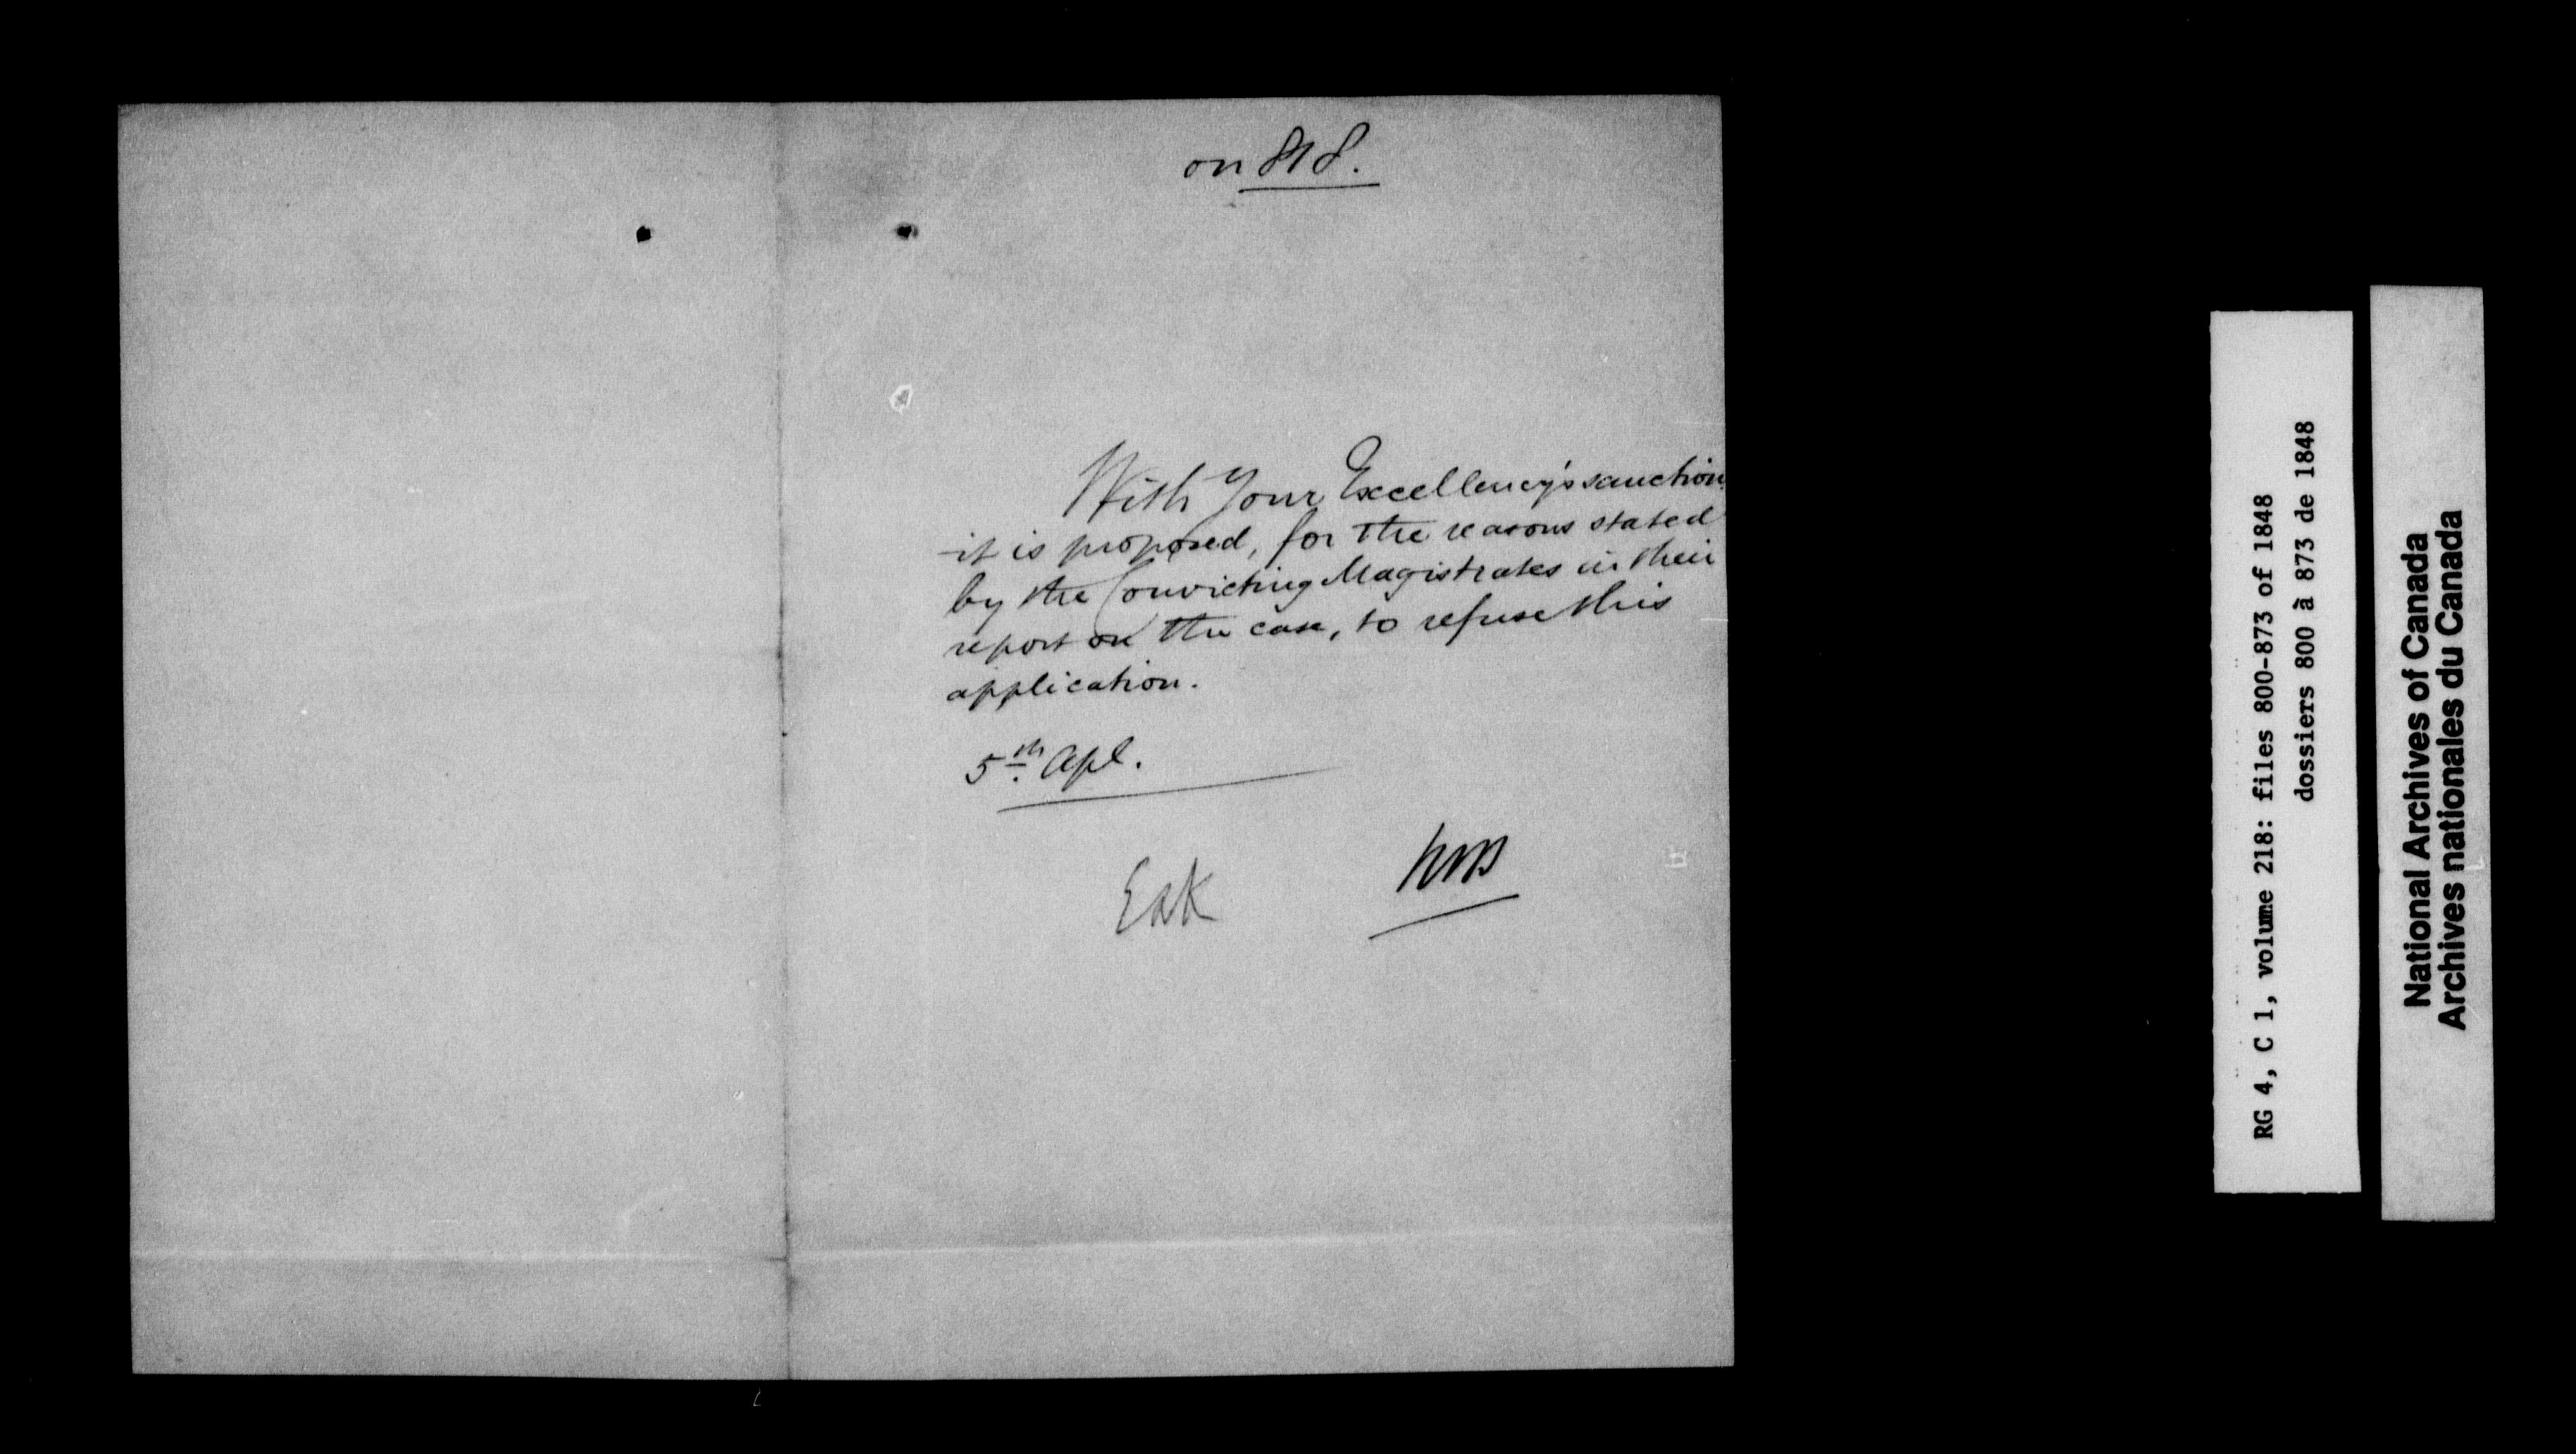 on 818.
With Your Excellency's sanction
it is proposed, for the reasons stated
by the Convicting Magistrates in their
report on the case, to refuse this
application.
5th. Apl.
E&K
RG 4, C 1, volume 218: files 800-873 of 1848
dossiers 800 à 873 de 1848
National Archives of Canada
Archives nationales du Canada